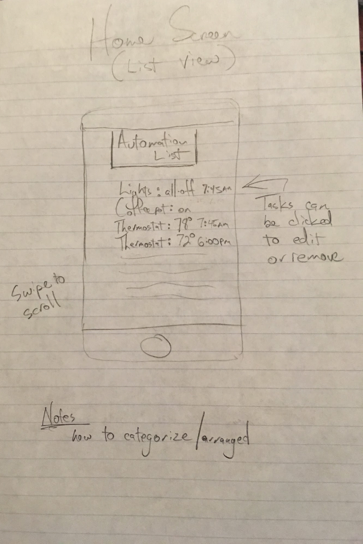 Home Screen
(List view)
Automation
List
Lights: all off 7:45am
Coffee pot: on
Thermostat: 79° 7:45am
Thermostat: 72° 6:00pm
Tasks can
be clicked
to edit
or remove
Swipe to
scroll
Notes
how to categorize/arranged